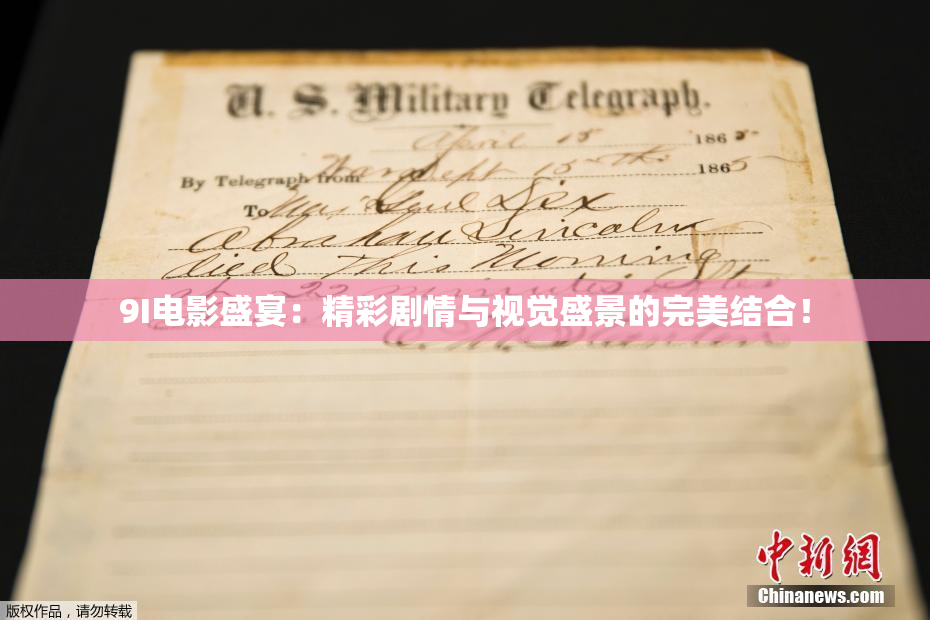 U. S. Military Telegraph.
April 15 1865
By Telegraph from War Dept 15th 1865
To Maj Genl Dix
Abraham Lincoln
died This Morning
at 22 minutes after
9I电影盛宴：精彩剧情与视觉盛景的完美结合！
E. M. Stanton
中新网
Chinanews.com
版权作品，请勿转载